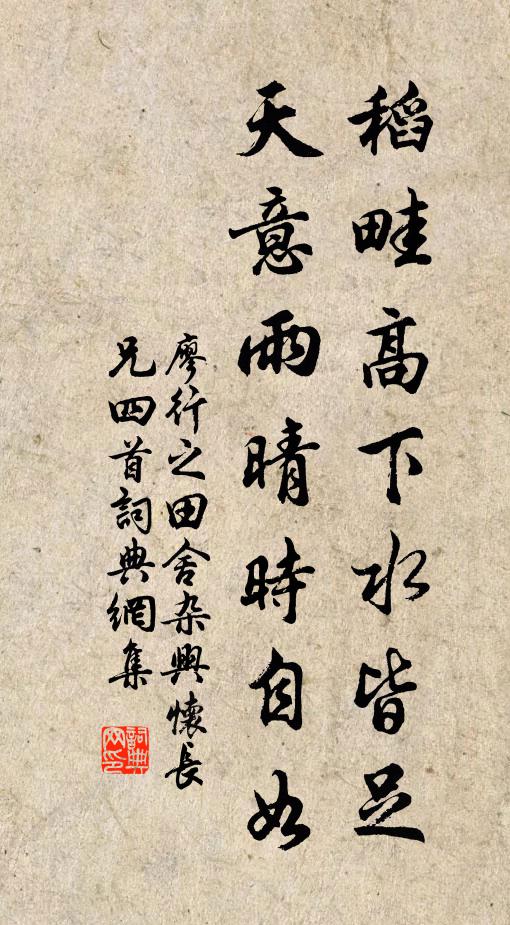 稻畦高下水皆足
天意雨晴時自如
廖行之田舍杂興懷長
兄四首詞典網集
詞典網印